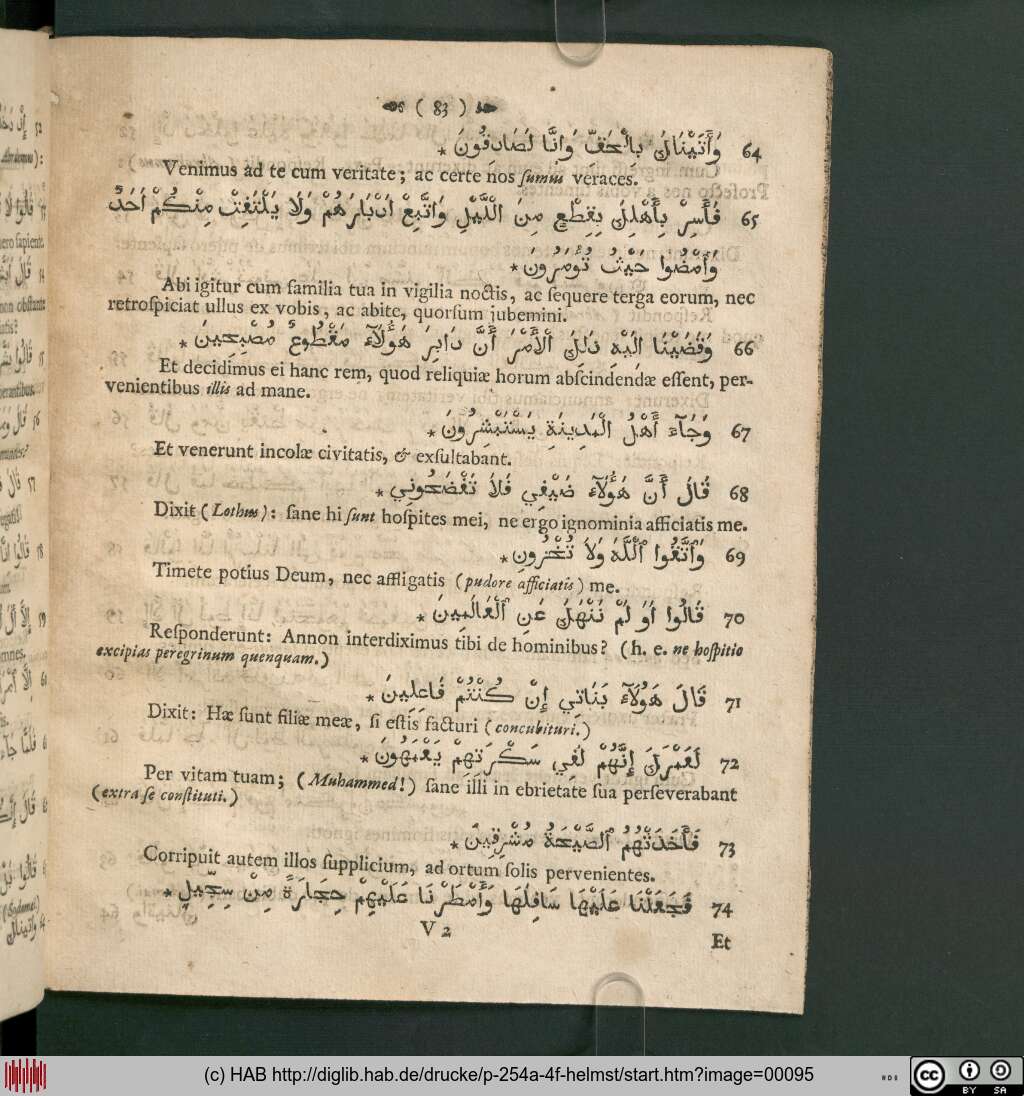 ( 83 )
64 وَأَتَيْنَاكَ بِالْحَقِّ وَإِنَّا لَصَادِقُونَ *
Venimus ad te cum veritate; ac certe nos ſumus veraces.
65 فَأَسِرْ بِأَهْلِكَ بِقِطْعٍ مِنَ الْلَّيْلِ وَاتَّبِعْ أَدْبَارَهُمْ وَلَا يَلْتَفِتْ مِنْكُمْ أَحَدٌ
وَأَمْضُوا حَيْثُ تُؤْمَرُونَ *
Abi igitur cum familia tua in vigilia noctis, ac ſequere terga eorum, nec
retroſpiciat ullus ex vobis, ac abite, quorſum jubemini.
66 وَقَضَيْنَا الَيْهِ ذَلِكَ الْأَمْرَ أَنَّ دَابِرَ هَؤُلَآءِ مَقْطُوعٌ مُصْبِحِينَ *
Et decidimus ei hanc rem, quod reliquiæ horum abſcindendæ eſſent, per-
venientibus illis ad mane.
67 وَجَآءَ أَهْلُ الْمَدِينَةِ يَسْتَبْشِرُونَ *
Et venerunt incolæ civitatis, & exſultabant.
68 قَالَ أَنَّ هَؤُلَآءِ ضَيْفِي فَلَا تَفْضَحُونِي *
Dixit (Lothus): ſane hi ſunt hoſpites mei, ne ergo ignominia afficiatis me.
69 وَٱتَّقُوا ٱللَّهَ وَلَا تُخْزُونِ *
Timete potius Deum, nec affligatis (pudore afficiatis) me.
70 قَالُوا أَوَ لَمْ نَنْهَكَ عَنِ ٱلْعَالَمِينَ *
Reſponderunt: Annon interdiximus tibi de hominibus? (h. e. ne hoſpitio
excipias peregrinum quenquam.)
71 قَالَ هَؤُلَآءِ بَنَاتِي إِنْ كُنْتُمْ فَاعِلِينَ *
Dixit: Hæ ſunt filiæ meæ, ſi eſtis facturi (concubituri.)
72 لَعَمْرُكَ إِنَّهُمْ لَفِي سَكْرَتِهِمْ يَعْمَهُونَ *
Per vitam tuam; (Muhammed!) ſane illi in ebrietate ſua perſeverabant
(extra ſe conſtituti.)
73 فَأَخَذَتْهُمُ ٱلصَّيْحَةُ مُشْرِقِينَ *
Corripuit autem illos ſupplicium, ad ortum ſolis pervenientes.
74 فَجَعَلْنَا عَلَيْهَا سَافِلُهَا وَأَمْطَرْنَا عَلَيْهِمْ حِجَارَةً مِنْ سِجِّيلٍ *
V 2
Et
(c) HAB http://diglib.hab.de/drucke/p-254a-4f-helmst/start.htm?image=00095
cc BY SA